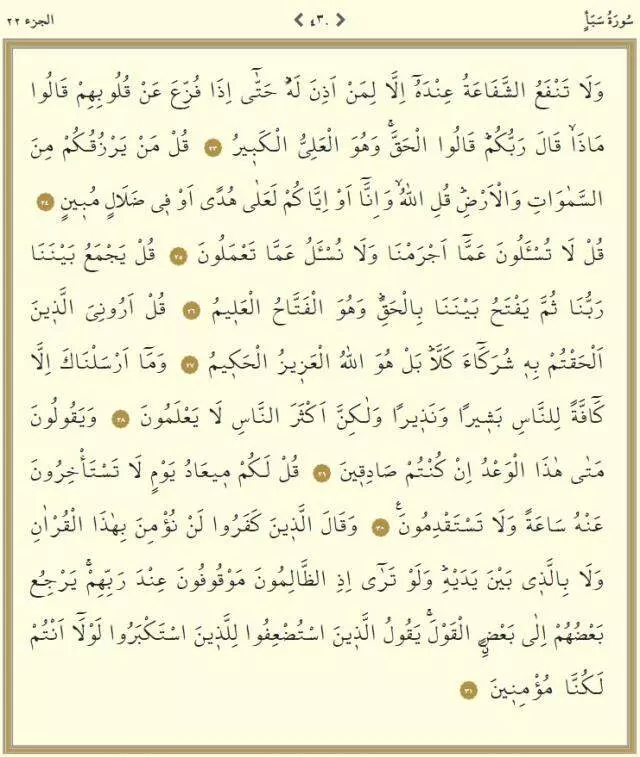 سُورَةُ سَبَأٍ ❮ ٤٣٠ ❯ الجزء ٢٢
وَلَا تَنْفَعُ الشَّفَاعَةُ عِنْدَهُٓ اِلَّا لِمَنْ اَذِنَ لَهُۜ حَتّٰٓى اِذَا فُزِّعَ عَنْ قُلُوبِهِمْ قَالُوا
مَاذَاۙ قَالَ رَبُّكُمْۜ قَالُوا الْحَقَّۚ وَهُوَ الْعَلِيُّ الْكَب۪يرُ ٢٣ قُلْ مَنْ يَرْزُقُكُمْ مِنَ
السَّمٰوَاتِ وَالْاَرْضِۜ قُلِ اللّٰهُۙ وَاِنَّٓا اَوْ اِيَّاكُمْ لَعَلٰى هُدًى اَوْ ف۪ي ضَلَالٍ مُب۪ينٍ ٢٤
قُلْ لَا تُسْـَٔلُونَ عَمَّٓا اَجْرَمْنَا وَلَا نُسْـَٔلُ عَمَّا تَعْمَلُونَ ٢٥ قُلْ يَجْمَعُ بَيْنَنَا
رَبُّنَا ثُمَّ يَفْتَحُ بَيْنَنَا بِالْحَقِّۜ وَهُوَ الْفَتَّاحُ الْعَل۪يمُ ٢٦ قُلْ اَرُونِيَ الَّذ۪ينَ
اَلْحَقْتُمْ بِه۪ شُرَكَٓاءَ كَلَّاۜ بَلْ هُوَ اللّٰهُ الْعَز۪يزُ الْحَك۪يمُ ٢٧ وَمَٓا اَرْسَلْنَاكَ اِلَّا
كَٓافَّةً لِلنَّاسِ بَش۪يرًا وَنَذ۪يرًا وَلٰكِنَّ اَكْثَرَ النَّاسِ لَا يَعْلَمُونَ ٢٨ وَيَقُولُونَ
مَتٰى هٰذَا الْوَعْدُ اِنْ كُنْتُمْ صَادِق۪ينَ ٢٩ قُلْ لَكُمْ م۪يعَادُ يَوْمٍ لَا تَسْتَأْخِرُونَ
عَنْهُ سَاعَةً وَلَا تَسْتَقْدِمُونَ۟ ٣٠ وَقَالَ الَّذ۪ينَ كَفَرُوا لَنْ نُؤْمِنَ بِهٰذَا الْقُرْاٰنِ
وَلَا بِالَّذ۪ي بَيْنَ يَدَيْهِۜ وَلَوْ تَرٰٓى اِذِ الظَّالِمُونَ مَوْقُوفُونَ عِنْدَ رَبِّهِمْۚ يَرْجِعُ
بَعْضُهُمْ اِلٰى بَعْضٍۨ الْقَوْلَۚ يَقُولُ الَّذ۪ينَ اسْتُضْعِفُوا لِلَّذ۪ينَ اسْتَكْبَرُوا لَوْلَٓا اَنْتُمْ
لَكُنَّا مُؤْمِن۪ينَ ٣١